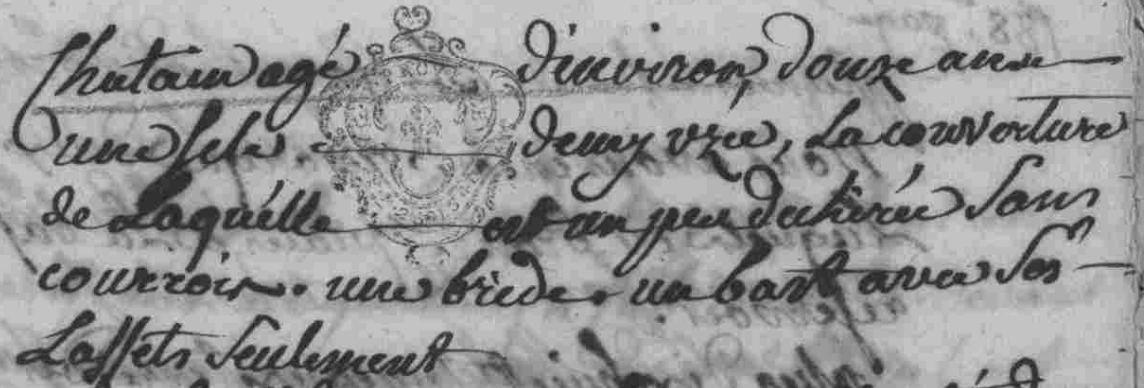 Chatain agé d'environ douze ans
une sele demy uzée, La couverture
de Laquélle est un peu dechirée sans
courrois. une bride. un bast avec ses
Lassets seulement